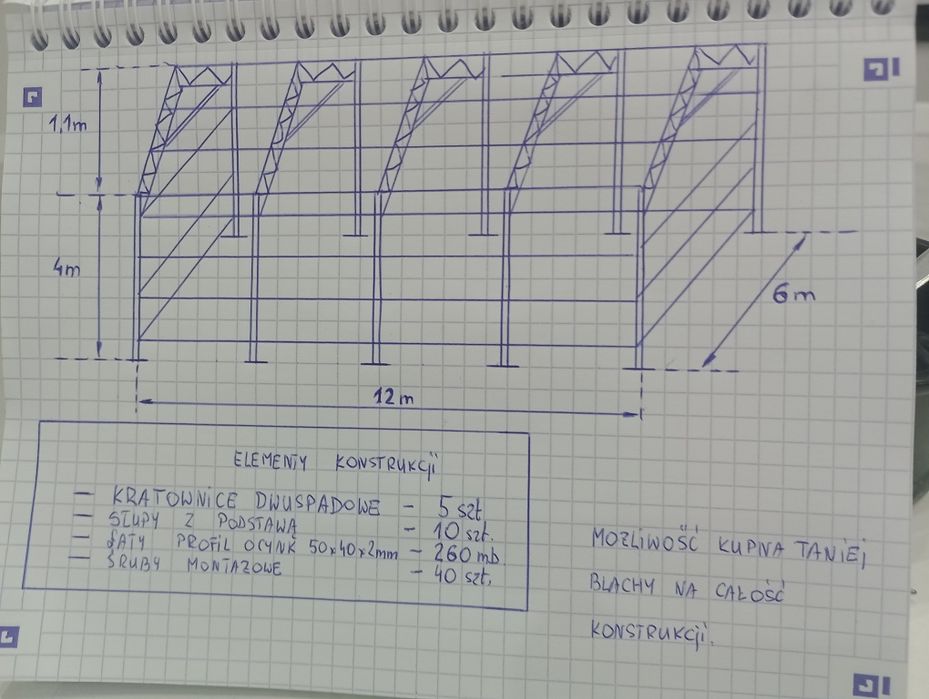 1,1m
4m
6m
12m
ELEMENTY KONSTRUKCJI
– KRATOWNICE DWUSPADOWE – 5 szt
– SŁUPY Z PODSTAWĄ – 10 szt.
– ŁATY PROFIL OCYNK 50x40x2mm – 260 mb.
– ŚRUBY MONTAŻOWE – 40 szt.
MOŻLIWOŚĆ KUPNA TANIEJ
BLACHY NA CAŁOŚĆ
KONSTRUKCJI.